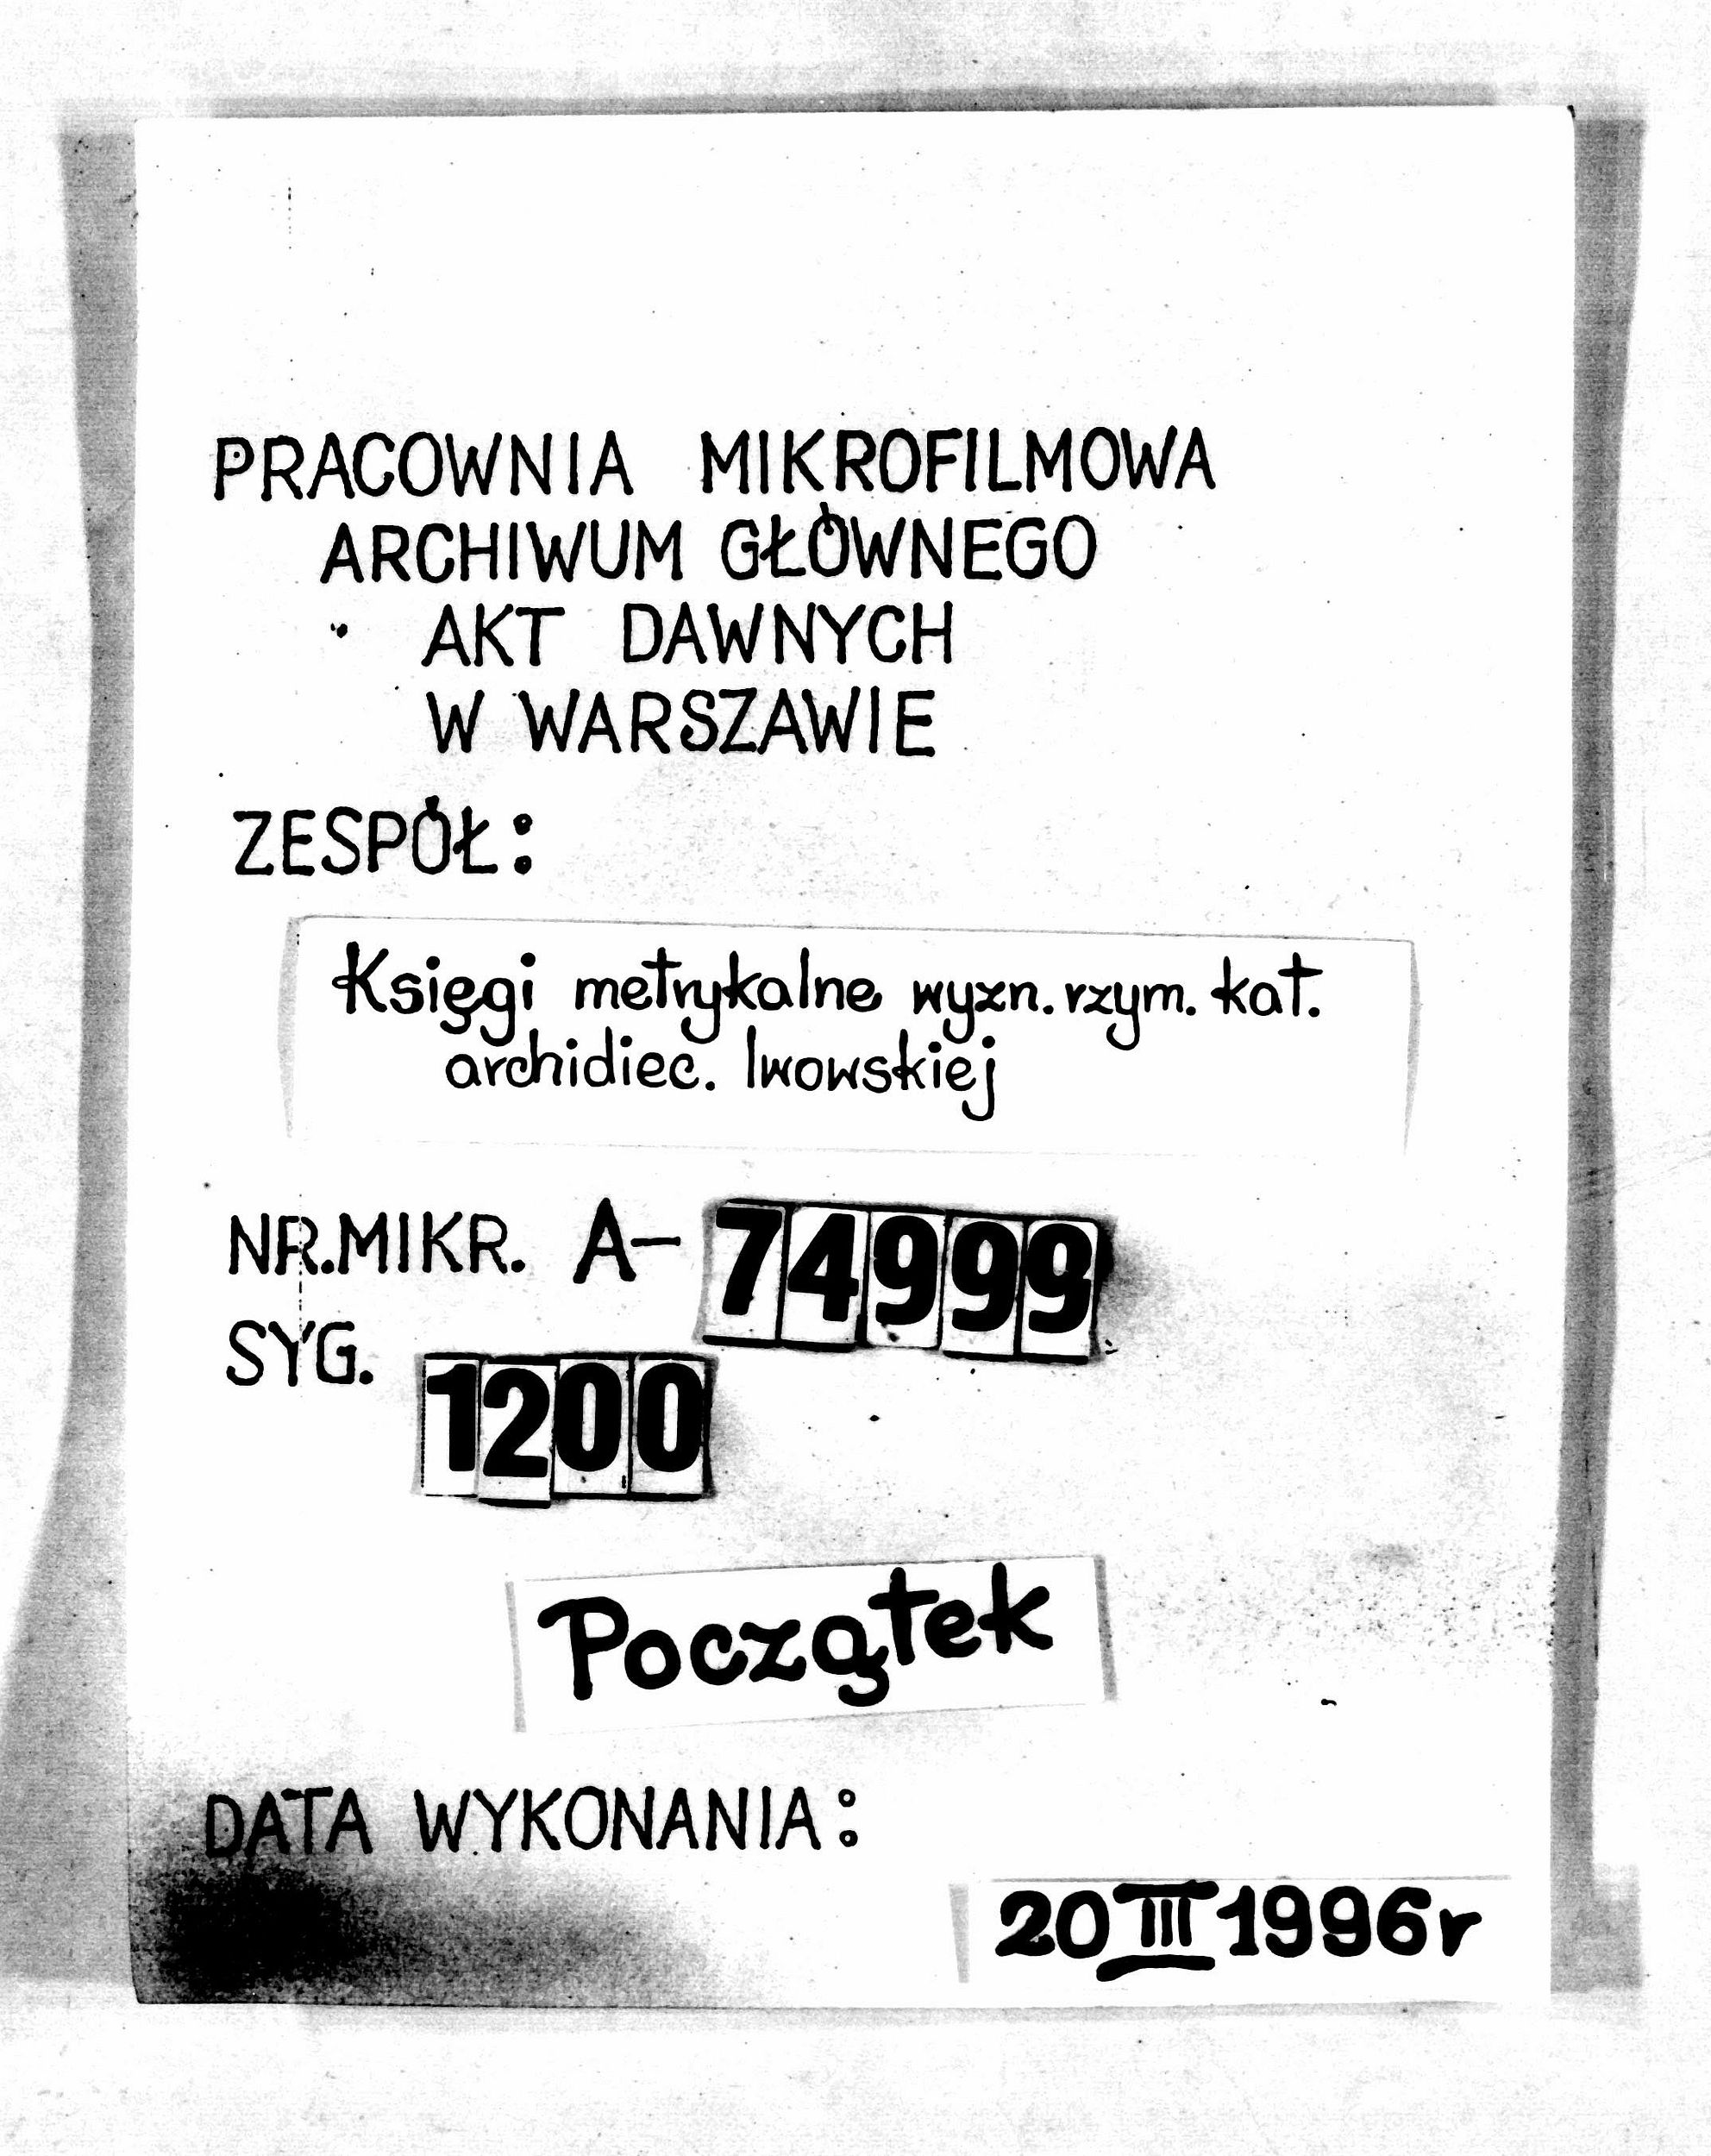 PRACOWNIA MIKROFILMOWA
ARCHIWUM GŁÓWNEGO
AKT DAWNYCH
W WARSZAWIE
ZESPÓŁ:
Księgi metrykalne wyzn. rzym. kat.
archidiec. lwowskiej
NR.MIKR. A-74999
SYG. 1200
Początek
DATA WYKONANIA:
20 III 1996r